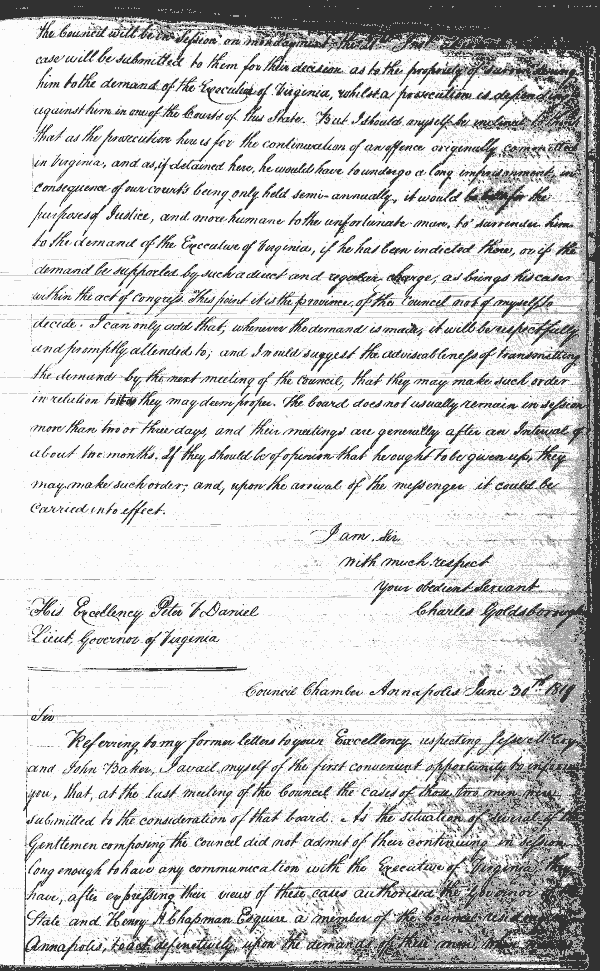 the Council will be in Session on monday next, the
case will be submitted to them for their decision as to the propriety of surrendering
him to the demand of the Executive of Virginia, whilst a prosecution is depending
against him in one of the Courts of this State. But I should myself be inclined to think
that as the prosecution here is for the continuation of an offence originally committed
in Virginia, and as, if detained here, he would have to undergo a long imprisonment, in
consequence of our courts being only held semi-annually, it would be better for the
purposes of Justice, and more humane to the unfortunate man, to surrender him
to the demand of the Executive of Virginia, if he has been indicted there, or if the
demand be supported by such a direct and regular charge, as brings his case
within the act of Congress. This point it is the province, of the Council not of myself to
decide. I can only add that, whenever the demand is made, it will be respectfully
and promptly attended to; and I would suggest the advisableness of transmitting
the demand by the next meeting of the Council, that they may make such order
in relation to it as they may deem proper. The board does not usually remain in session
more than two or three days, and their meetings are generally after an Interval of
about two months. If they should be of opinion that he ought to be given up, they
may make such order; and, upon the arrival of the messenger it could be
carried into effect.
I am, Sir
with much respect
Your obedient Servant
Charles Goldsborough
His Excellency Peter V Daniel
Lieut, Governor of Virginia
Council Chamber Annapolis June 30th 1819
Sir
Referring to my former letters to your Excellency respecting Jesse
and John Baker, I avail myself of the first convenient opportunity to inform
you, that, at the last meeting of the Council the cases of those two men were
submitted to the consideration of that board. As the situation of several of the
Gentlemen composing the council did not admit of their continuing in session
long enough to have any communication with the Executive of Virginia they
have, after expressing their views of these cases authorised the Governor
State and Henry H Chapman Esquire a member of the Council residing
Annapolis, to act definitively, upon the demands of these men